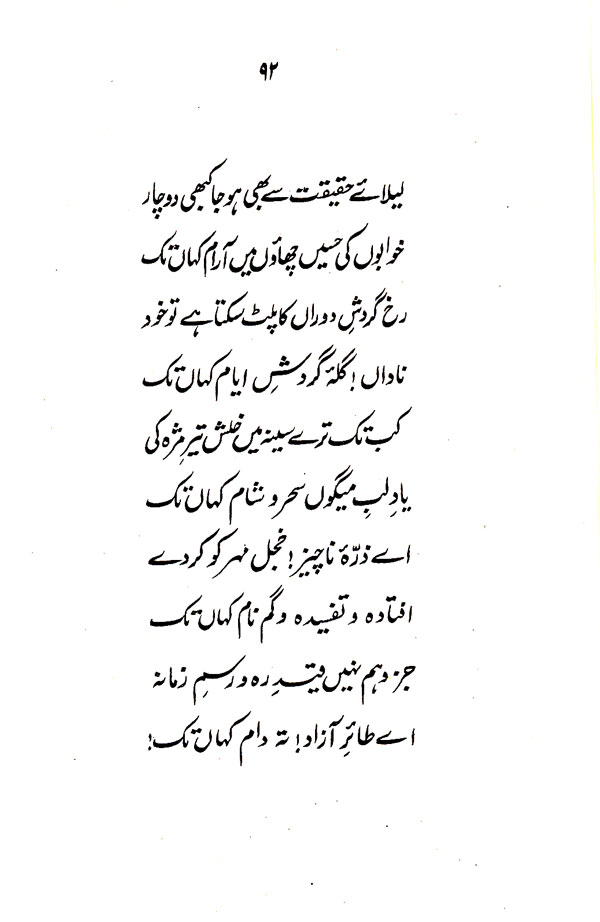 ۹۲
لیلائے حقیقت سے بھی ہو جا کبھی دو چار
خوابوں کی حسیں چھاؤں میں آرام کہاں تک
رخ گردشِ دوراں کا پلٹ سکتا ہے تو خود
ناداں! گلۂ گردشِ ایام کہاں تک
کب تک ترے سینہ میں خلش تیرِ مژہ کی
یادِ لبِ میگوں سحر و شام کہاں تک
اے ذرّۂ ناچیز! خجل مہر کو کر دے
افتادہ و تفسیدہ و گم نام کہاں تک
جز وہم نہیں قیدِ رہ و رسمِ زمانہ
اے طائرِ آزاد! تہ دام کہاں تک!